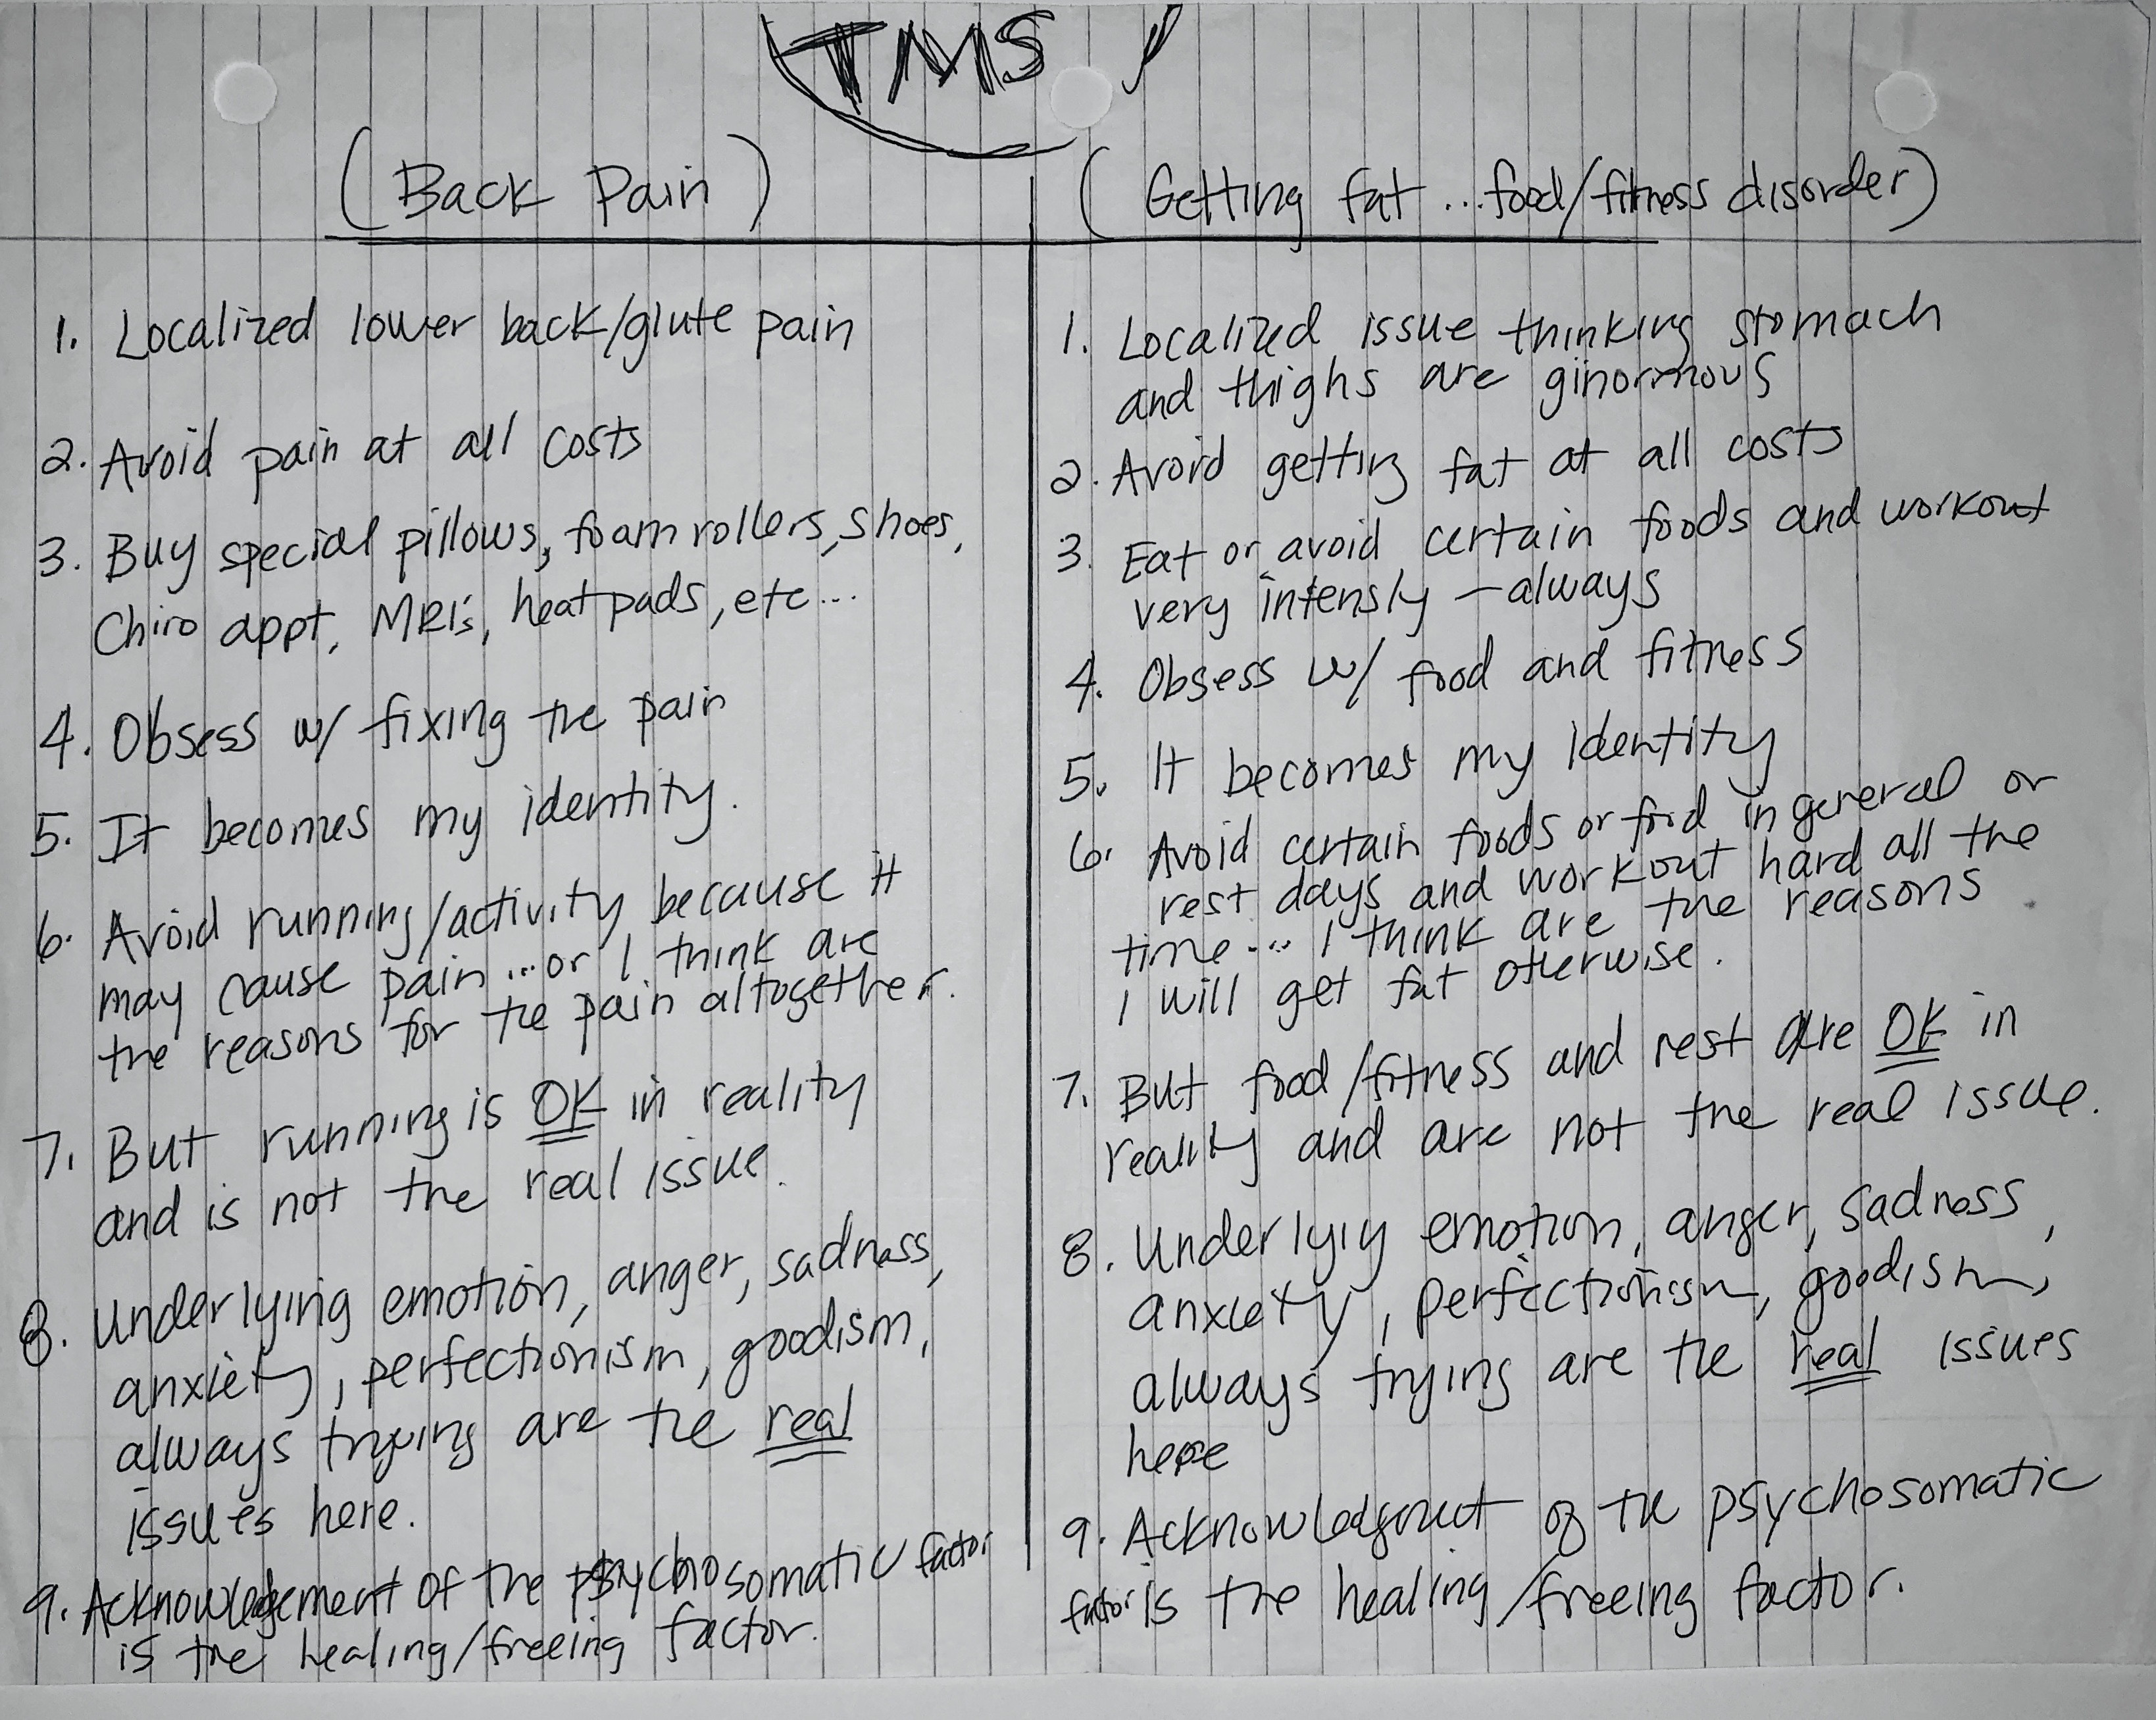 TMS
(Back Pain)
1. Localized lower back/glute pain
2. Avoid pain at all costs
3. Buy special pillows, foam rollers, shoes,
Chiro appt, MRI's, heat pads, etc...
4. Obsess w/ fixing the pain
5. It becomes my identity.
6. Avoid running/activity because it
may cause pain...or I think are
the reasons for the pain altogether.
7. But running is OK in reality
and is not the real issue.
8. Underlying emotion, anger, sadness,
anxiety, perfectionism, goodism,
always trying are the real
issues here.
9. Acknowledgement of the psychosomatic factor
is the healing/freeing factor.
(Getting fat...food/fitness disorder)
1. Localized issue thinking stomach
and thighs are ginormous
2. Avoid getting fat at all costs
3. Eat or avoid certain foods and workout
very intensly - always
4. Obsess w/ food and fitness
5. It becomes my identity
6. Avoid certain foods or food in general or
rest days and workout hard all the
time... I think are the reasons
I will get fat otherwise.
7. But food/fitness and rest are OK in
reality and are not the real issue.
8. Underlying emotion, anger, sadness,
anxiety, perfectionism, goodism,
always trying are the real issues
here
9. Acknowledgment of the psychosomatic
factor is the healing/freeing factor.